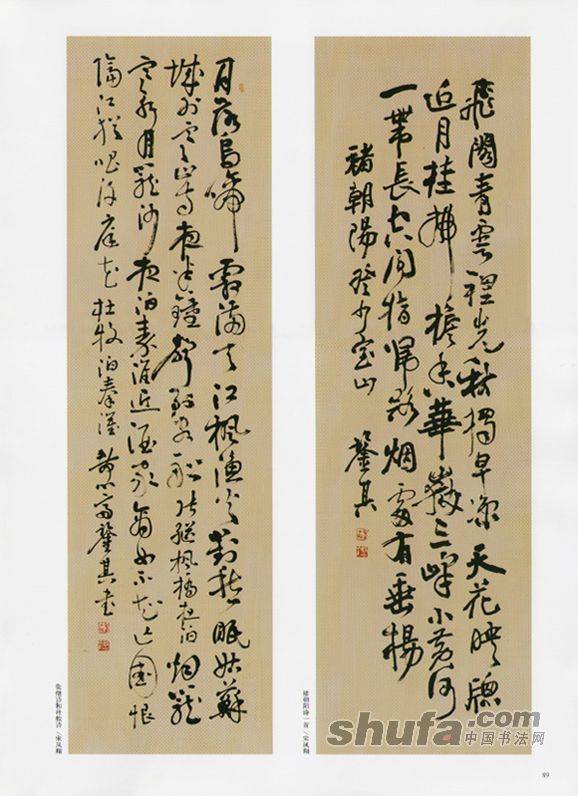 飛閣青雲裡先秋獨早涼天花映牕
近月桂拂檐香華嶽三峰小黃河
一帶長空間指歸路烟處有垂楊
褚朝陽登少室山
其
月落烏啼霜滿天江楓漁火對愁眠姑蘇
城外寒山寺夜半鐘聲到客船張繼楓橋夜泊烟籠
寒水月籠沙夜泊秦淮近酒家商女不知亡國恨
隔江猶唱後庭花杜牧泊秦淮其書
褚朝阳诗一首/宋凤翔
张继诗和杜牧诗/宋凤翔
shufa.com
中国书法网
89